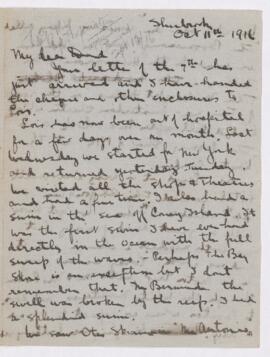 Sherbrooke
Oct 11th, 1916
My dear David
Your letter of the 7th has
just arrived and I have handed
the cheque and other enclosures to
Lois.
Lois has now been out of hospital
for a few days over a month. Last
Wednesday we started for New York
and returned yesterday, Tuesday.
We visited all the shops & theatres
and had a fine time. I also had a
swim in the sea off Coney Island. It
was the first swim I have ever had
directly in the ocean with the full
sweep of the waves. - Perhaps the Bay
Shore is an exception but I don't
remember that. In Bermuda the
swell was broken by the reef. I had
a splendid swim.
We saw Otis Skinner in Mr Antonio